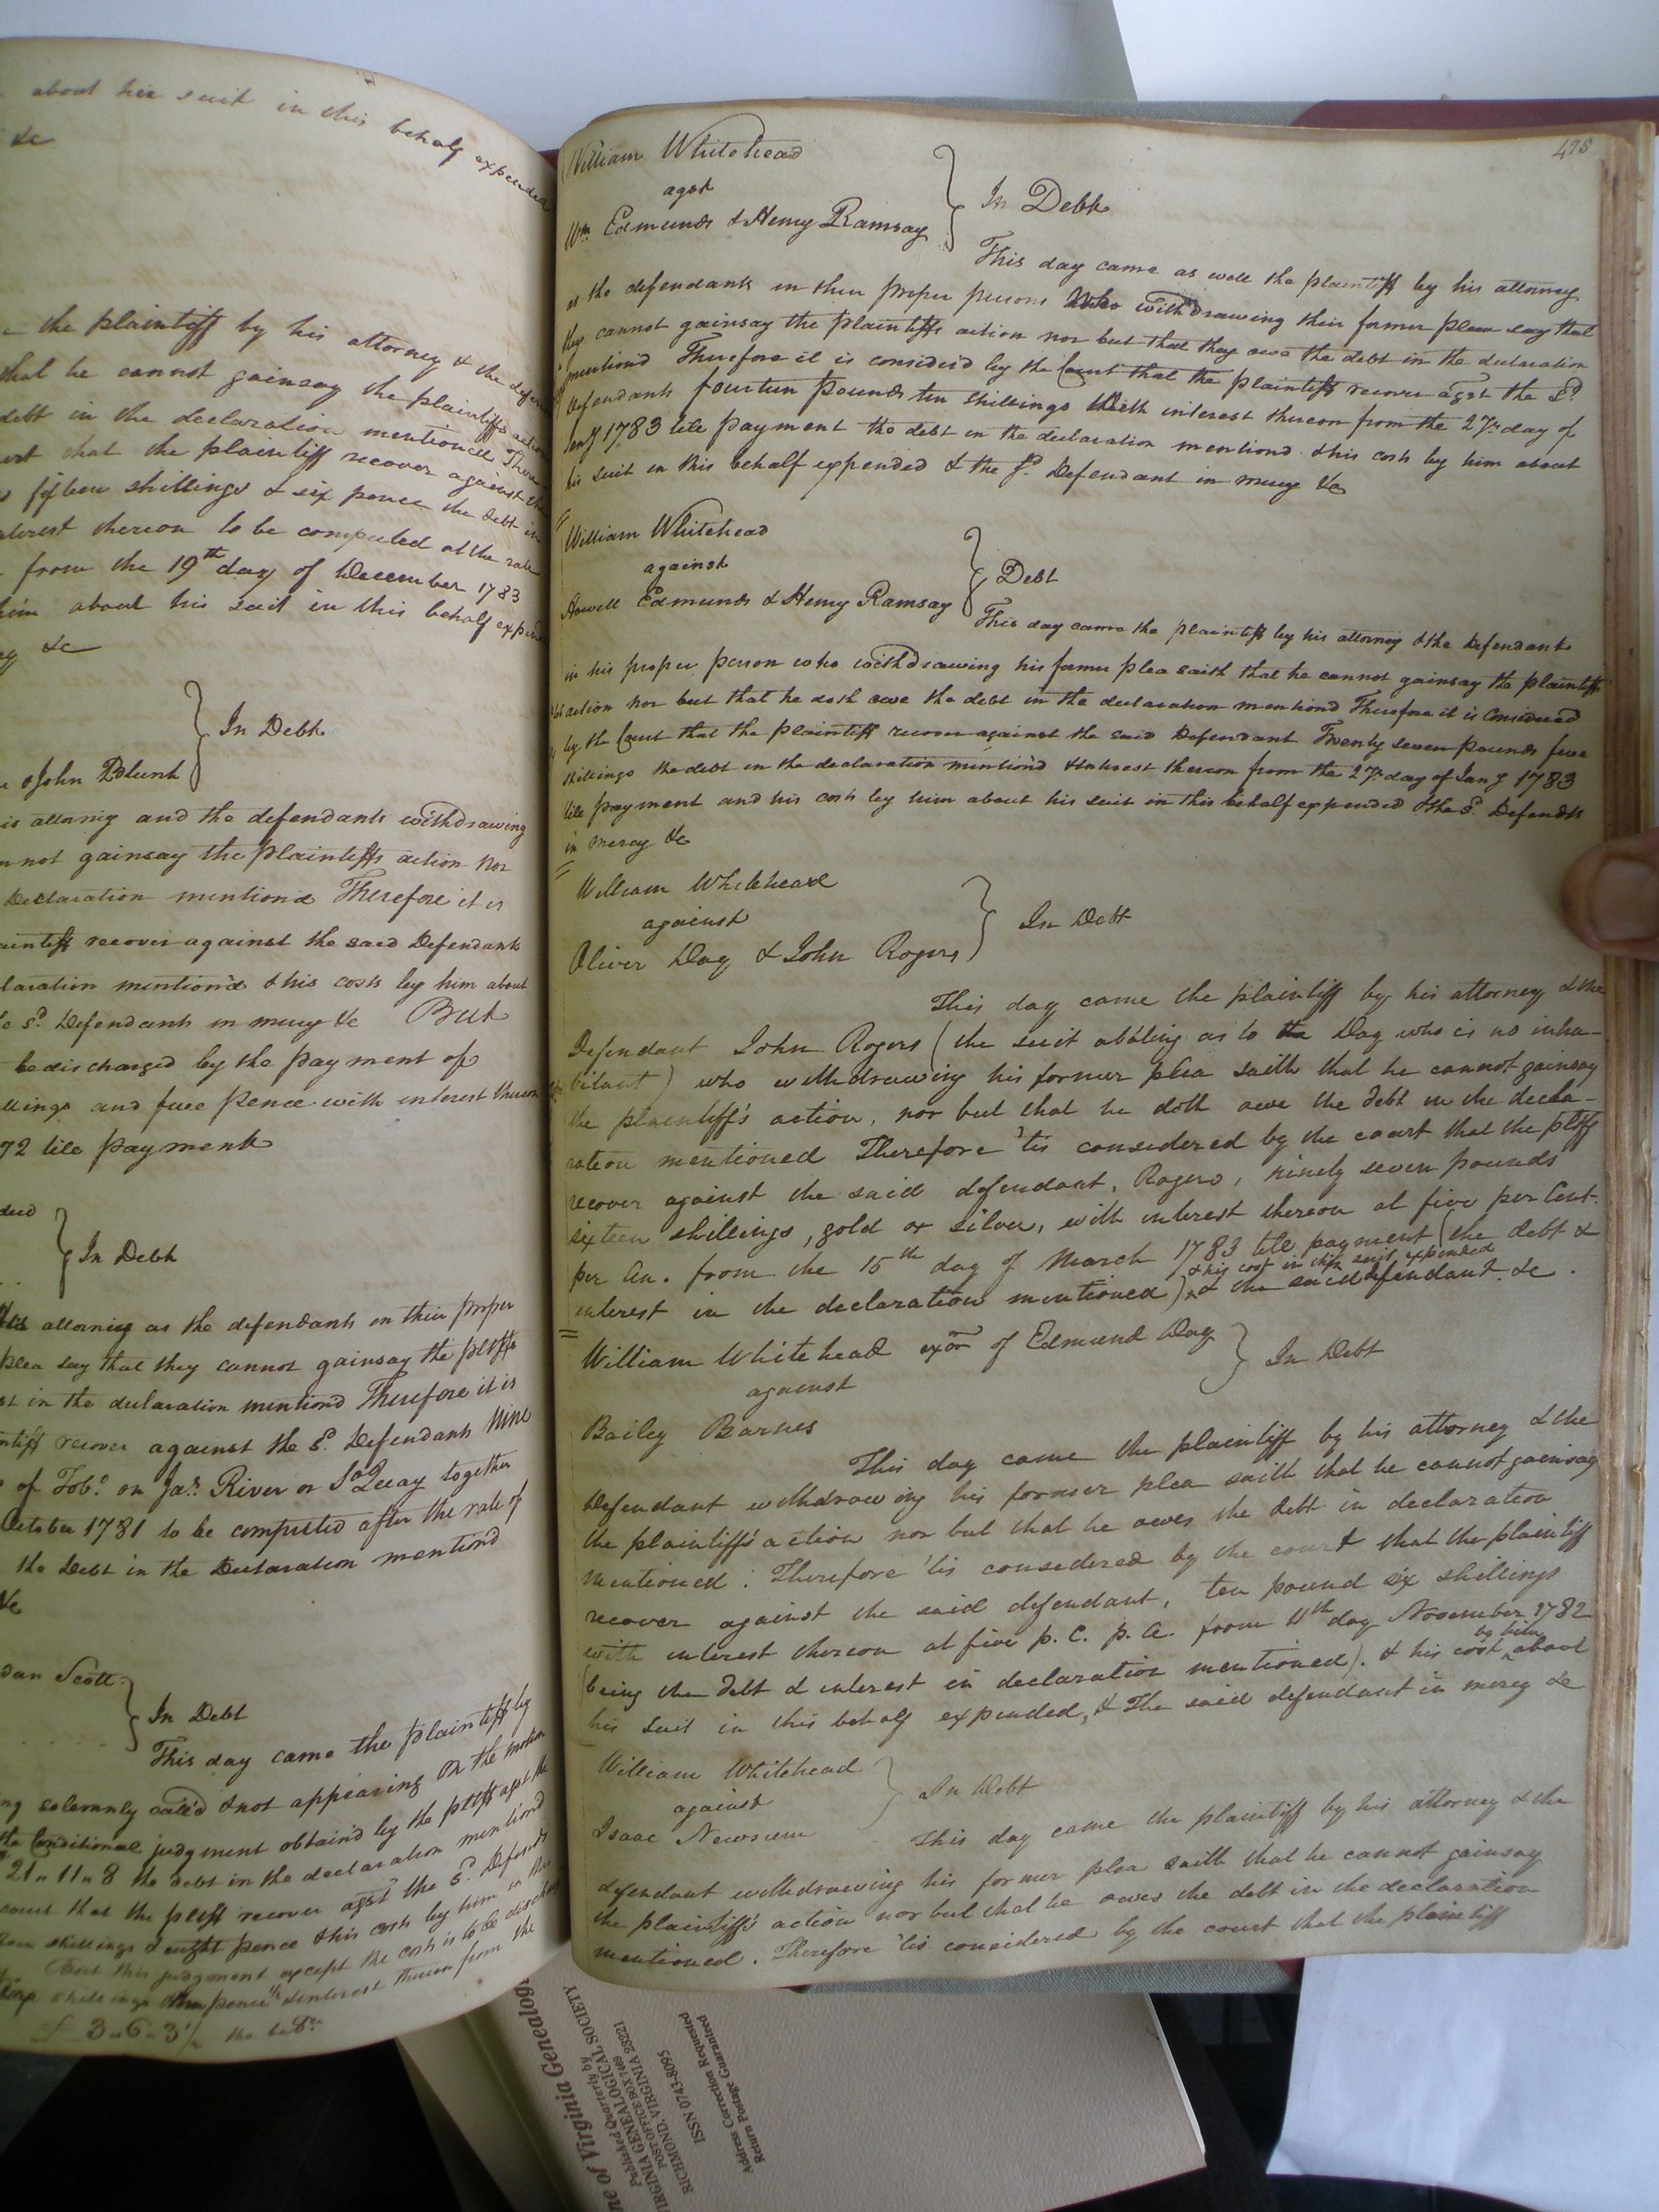 about his suit in this behalf expended
&c
the plaintiff by his attorney & the
that he cannot gainsay the plaintiffs action
debt in the declaration mentioned
that the plaintiff recover against the
fifteen shillings & six pence the debt in
interest thereon to be computed at the rate
from the 19th day of December 1783
him about his suit in this behalf
&c
In Debt
John Blunt
his attorney and the defendants withdrawing
not gainsay the plaintiffs action nor
Declaration mentiond Therefore it is
recover against the said Defendants
mentiond & his costs by him about
sd. Defendants in mercy &c But
be discharged by the payment of
and five pence with interest thereon
72 till payment
In Debt
attorney as the defendants in their proper
plea say that they cannot gainsay the pltffs
in the declaration mentiond Therefore it is
recover against the sd. Defendants Nine
of Tobo. on Jas. River or So. Quay together
October 1781 to be computed after the rate of
the Debt in the Declaration mentiond
&c
Scott
In Debt
This day came the plaintiff by
solemnly calld & not appearing On the motion
the Conditional judgment obtaind by the pltff agst the
21 " 11 " 8 the debt in the declaration mentiond
that the pltff recover agst the sd. Defends
shillings & eight pence & his costs by him in
But this judgment except the costs is to be
shillings pence & interest thereon from the
£ 3 " 6 " 3½ the
475
William Whitehead
agst
Wm. Edmunds & Henry Ramsay
In Debt
This day came as well the plaintiff by his attorney
as the defendants in their proper persons Who withdrawing their former pleas say that
they cannot gainsay the plaintiffs action nor but that they owe the debt in the declaration
mentiond Therefore it is considerd by the Court that the plaintiff recover agst the sd.
defendants fourteen pounds ten shillings With interest thereon from the 27th day of
Jany 1783 till payment the debt in the declaration mentiond & his costs by him about
his suit in this behalf expended & the sd. Defendant in mercy &c
William Whitehead
against
Howell Edmunds & Henry Ramsay
Debt
This day came the plaintiff by his attorney & the Defendant
in his proper person who withdrawing his former plea saith that he cannot gainsay the plaintiffs
action nor but that he doth owe the debt in the declaration mentiond Therefore it is Considered
by the Court that the plaintiff recover against the said Defendant Twenty seven pounds five
shillings the debt in the declaration mentiond & interest thereon from the 27th day of Jany 1783
till payment and his costs by him about his suit in this behalf expended & the sd. Defendts
in mercy &c
William Whitehead
against
Oliver Day & John Rogers
In Debt
This day came the plaintiff by his attorney & the
Defendant John Rogers (the suit abating as to Day who is no inha-
bitant) who withdrawing his former plea saith that he cannot gainsay
the plaintiff's action, nor but that he doth owe the debt in the decla-
ration mentioned Therefore 'tis considered by the court that the pltff
recover against the said defendant, Rogers, ninety seven pounds
sixteen shillings, gold or silver, with interest thereon at five per Cent.
per An. from the 15th day of March 1783 till payment (the debt &
& his cost in this suit expended
interest in the declaration mentioned) & the said defendant &c.
William Whitehead exor of Edmund Day
against
Bailey Barnes
In Debt
This day came the plaintiff by his attorney & the
Defendant withdrawing his former plea saith that he cannot gainsay
the plaintiff's action nor but that he owes the debt in declaration
mentioned: Therefore 'tis considered by the court that the plaintiff
recover against the said defendant, ten pound six shillings
with interest thereon at five p. C. p. A. from 11th day November 1782
by him
(being the debt & interest in declaration mentioned). & his cost about
his suit in this behalf expended, & The said defendant in mercy &c
William Whitehead
against
Isaac Newsum
In Debt
This day came the plaintiff by his attorney & the
defendant withdrawing his former plea saith that he cannot gainsay
the plaintiff's action nor but that he owes the debt in the declaration
mentioned. Therefore 'tis considered by the court that the plaintiff
ne of Virginia Genealog
Published Quarterly by
VIRGINIA GENEALOGICAL SOCIETY
POST OFFICE BOX 7469
RICHMOND, VIRGINIA 23221
ISSN 0743-8095
Address Correction Requested
Return Postage Guaranteed